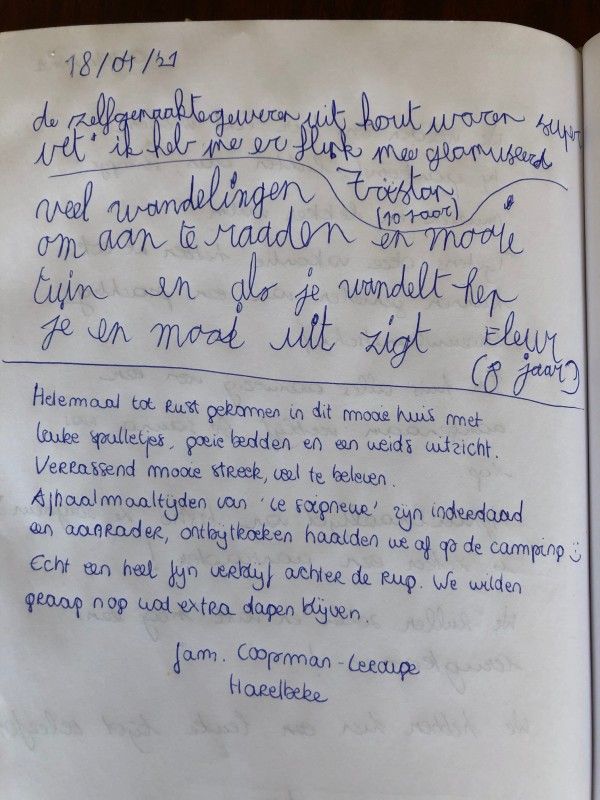 18/04/21
de zelfgemaakte geweren uit hout waren super
vet. ik heb me er flink mee geamuseerd
Tristan
(10 jaar)
veel wandelingen
om aan te raaden en mooie
tuin en als je wandelt hep
je en mooi uit zigt Fleur
(8 jaar)
Helemaal tot rust gekomen in dit mooie huis met
leuke spulletjes, goeie bedden en een weids uitzicht.
Verrassend mooie streek, veel te beleven.
Afhaalmaaltijden van 'le soigneur' zijn inderdaad
een aanrader, ontbijtkoeken haalden we af op de camping :)
Echt een heel fijn verblijf achter de rug. We wilden
graag nog wat extra dagen blijven.
fam. Coopman-
Harelbeke